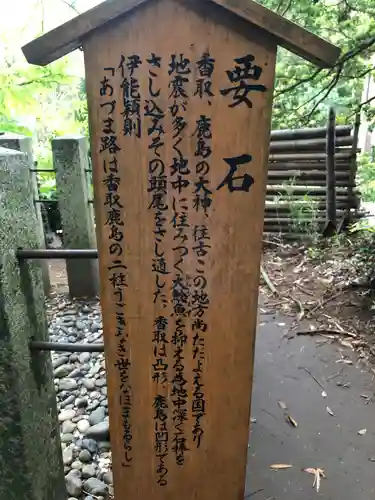 要石
香取、鹿島の大神、往古この地方尚たゞよえる国であり
地震が多く地中に住みつく大鯰魚を抑える為地中深く石棒を
さし込みその頭尾をさし通した、香取は凸形、鹿島は凹形である
伊能穎則
「あづま路は香取鹿島の二柱うごきなき世をなほまもるらし」